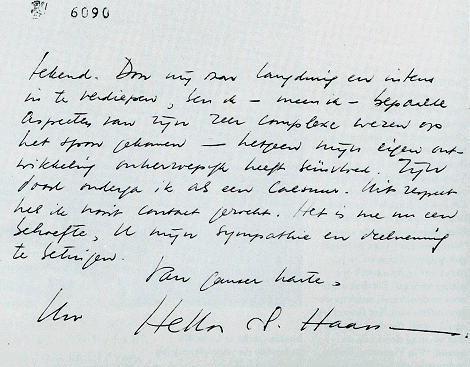 6090
tekend. Door mij zo langdurig en intens
in te verdiepen, ben ik – meen ik – bepaalde
aspecten van zijn zeer complexe wezen op
het spoor gekomen – hetgeen mijn eigen ont-
wikkeling onherroepelijk heeft beïnvloed. Zijn
dood onderga ik als een caesuur. Uit respect
heb ik nooit contact gezocht. Het is me nu een
behoefte, U mijn sympathie en deelneming
te betuigen.
Van ganser harte,
Uw Hella S. Haasse